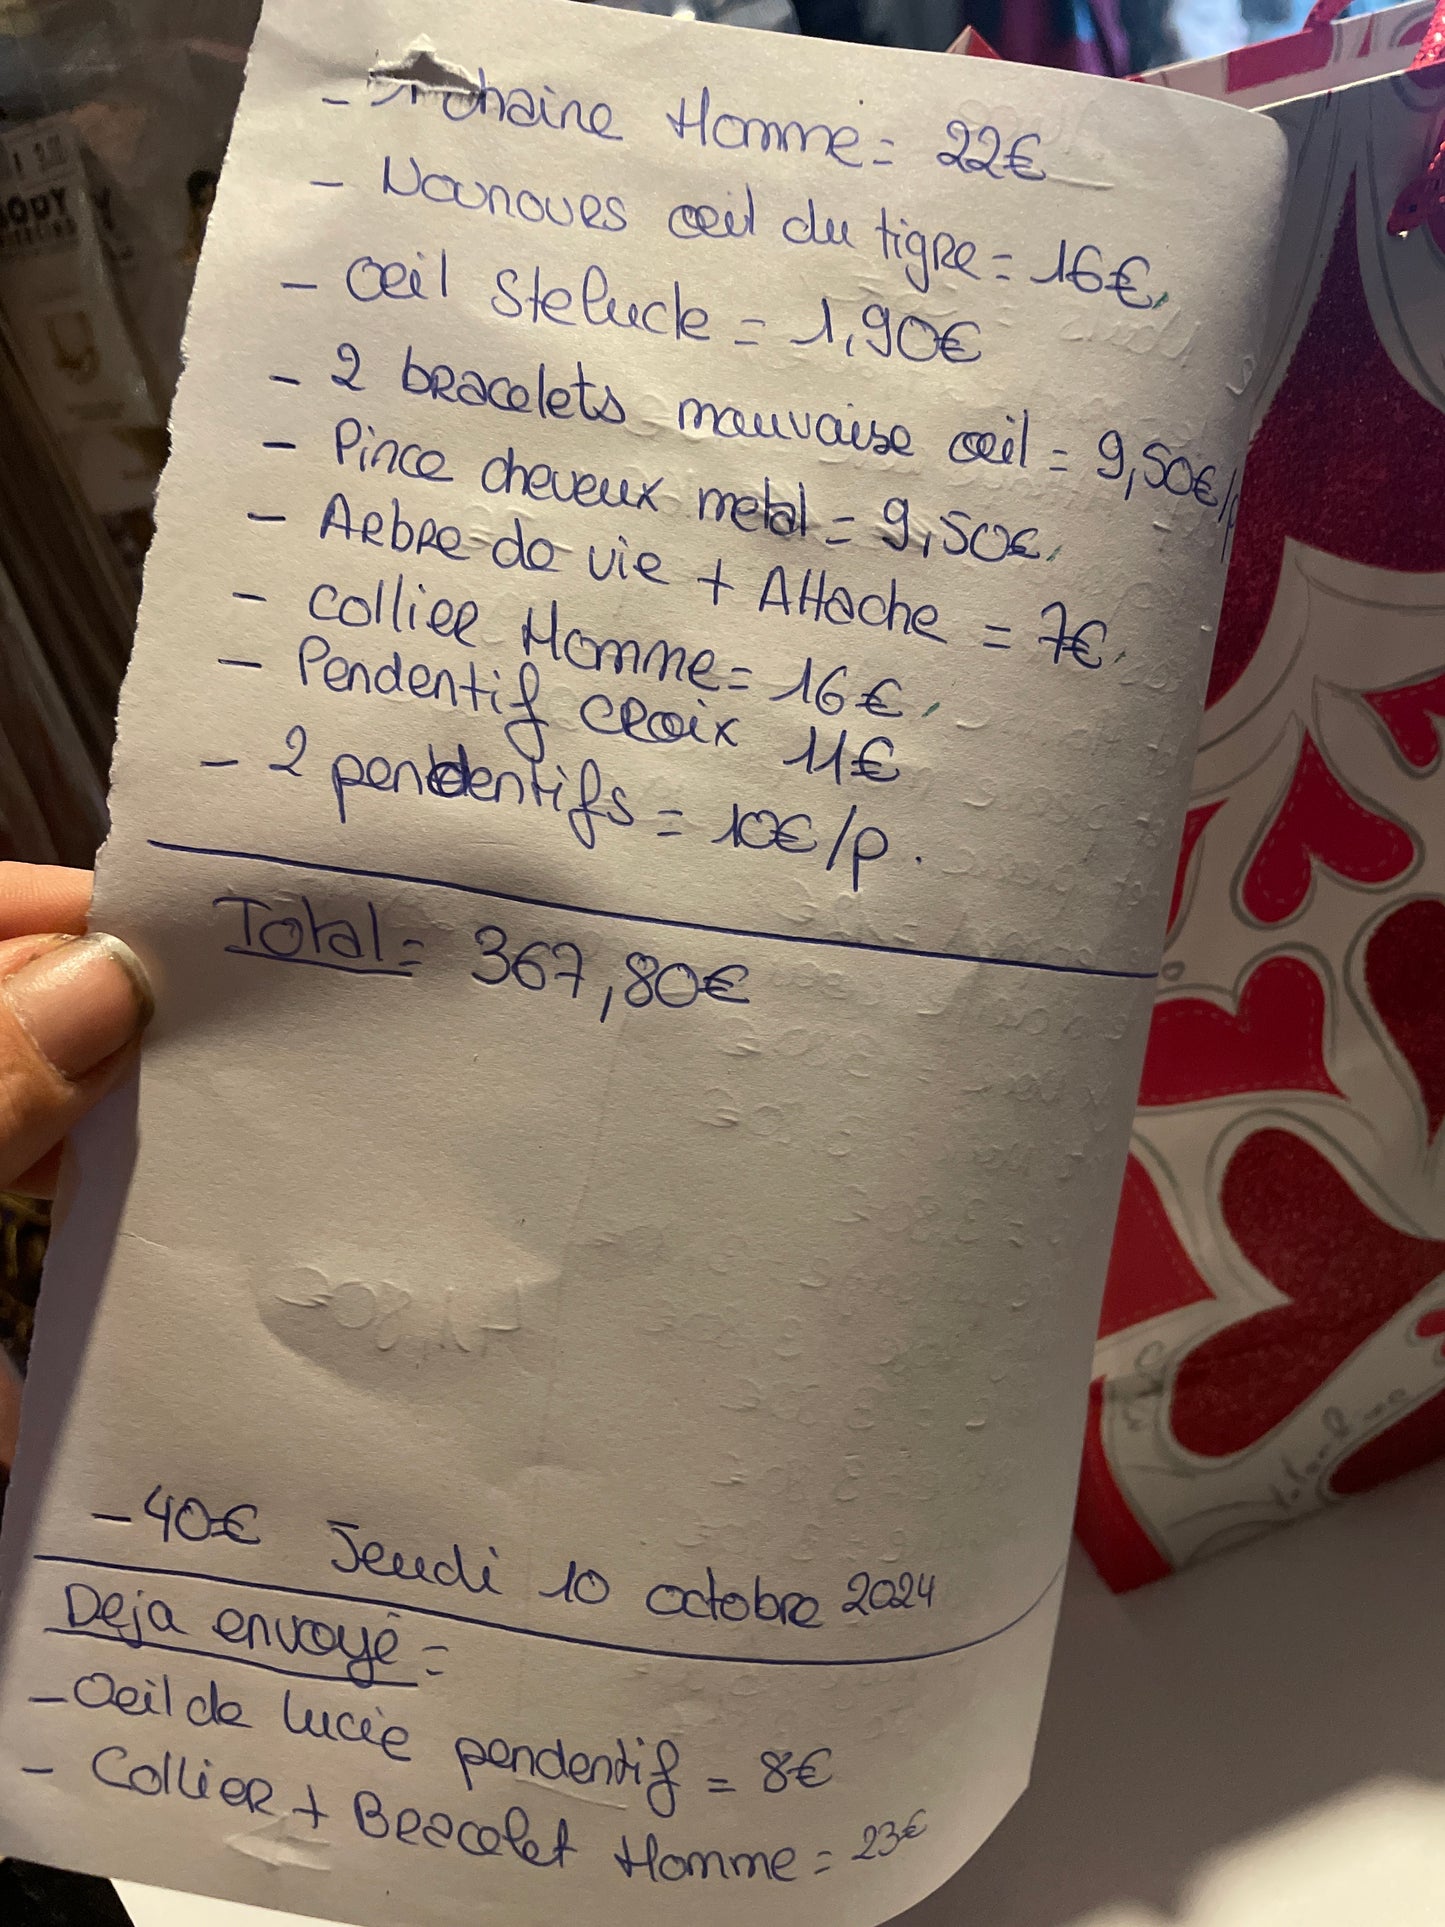 - 1 chaine Homme = 22€
- Nounours œil du tigre = 16€
- œil Stelucle = 1,90€
- 2 bracelets mauvaise œil = 9,50€/
- Pince cheveux metal = 9,50€.
- Arbre de vie + Attache = 7€.
- collier Homme = 16€.
- Pendentif croix 11€
- 2 pendentifs = 10€/p.
Total = 367,80€
- 40€ Jeudi 10 octobre 2024
Deja envoyé =
- Oeil de lucie pendentif = 8€
- Collier + Bracelet Homme = 23€
BODY